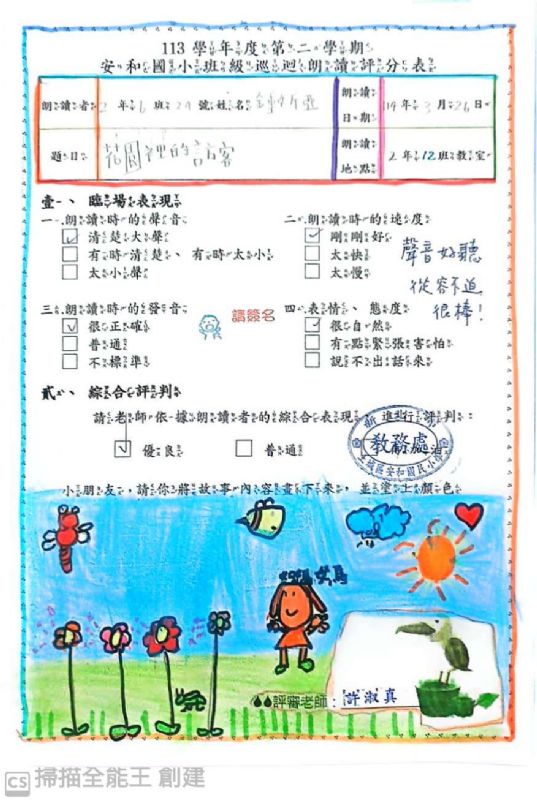 113 學年度第二學期
安和國小班級巡迴朗讀評分表
朗讀者 2 年 6 班 29 號姓名
朗讀日期 114 年 3 月 26 日
題目 花園裡的訪客
朗讀地點 2 年 12 班教室
壹、臨場表現
一、朗讀時的聲音
清楚大聲
有時清楚、有時太小
太小聲
二、朗讀時的速度
剛剛好
太快
太慢
聲音好聽
從容不迫
很棒!
三、朗讀時的發音
很正確
普通
不標準
請簽名
四、表情、態度
很自然
有點緊張害怕
說不出話來
貳、綜合評判
請老師依據朗讀者的綜合表現,進行評判:
優良
普通
教務處
小朋友,請你將故事內容畫下來,並塗上顏色
評審老師:許淑真
CS 掃描全能王 創建